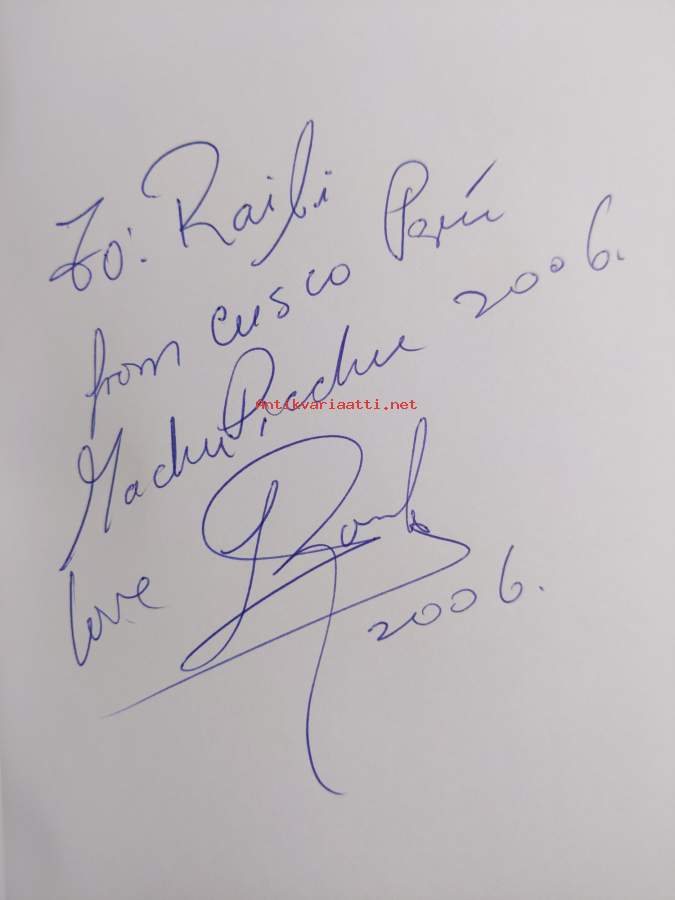 To: Raili
from Cusco Perú
Machu Picchu 2006.
Antikvariaatti.net
love
2006.